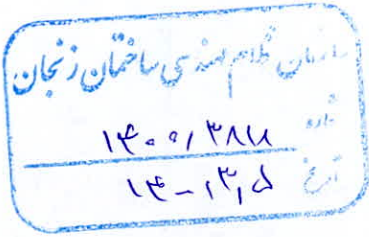 سازمان نظام مهندسی ساختمان زنجان
شماره
تاریخ ۱۴۰۰/۳/۵